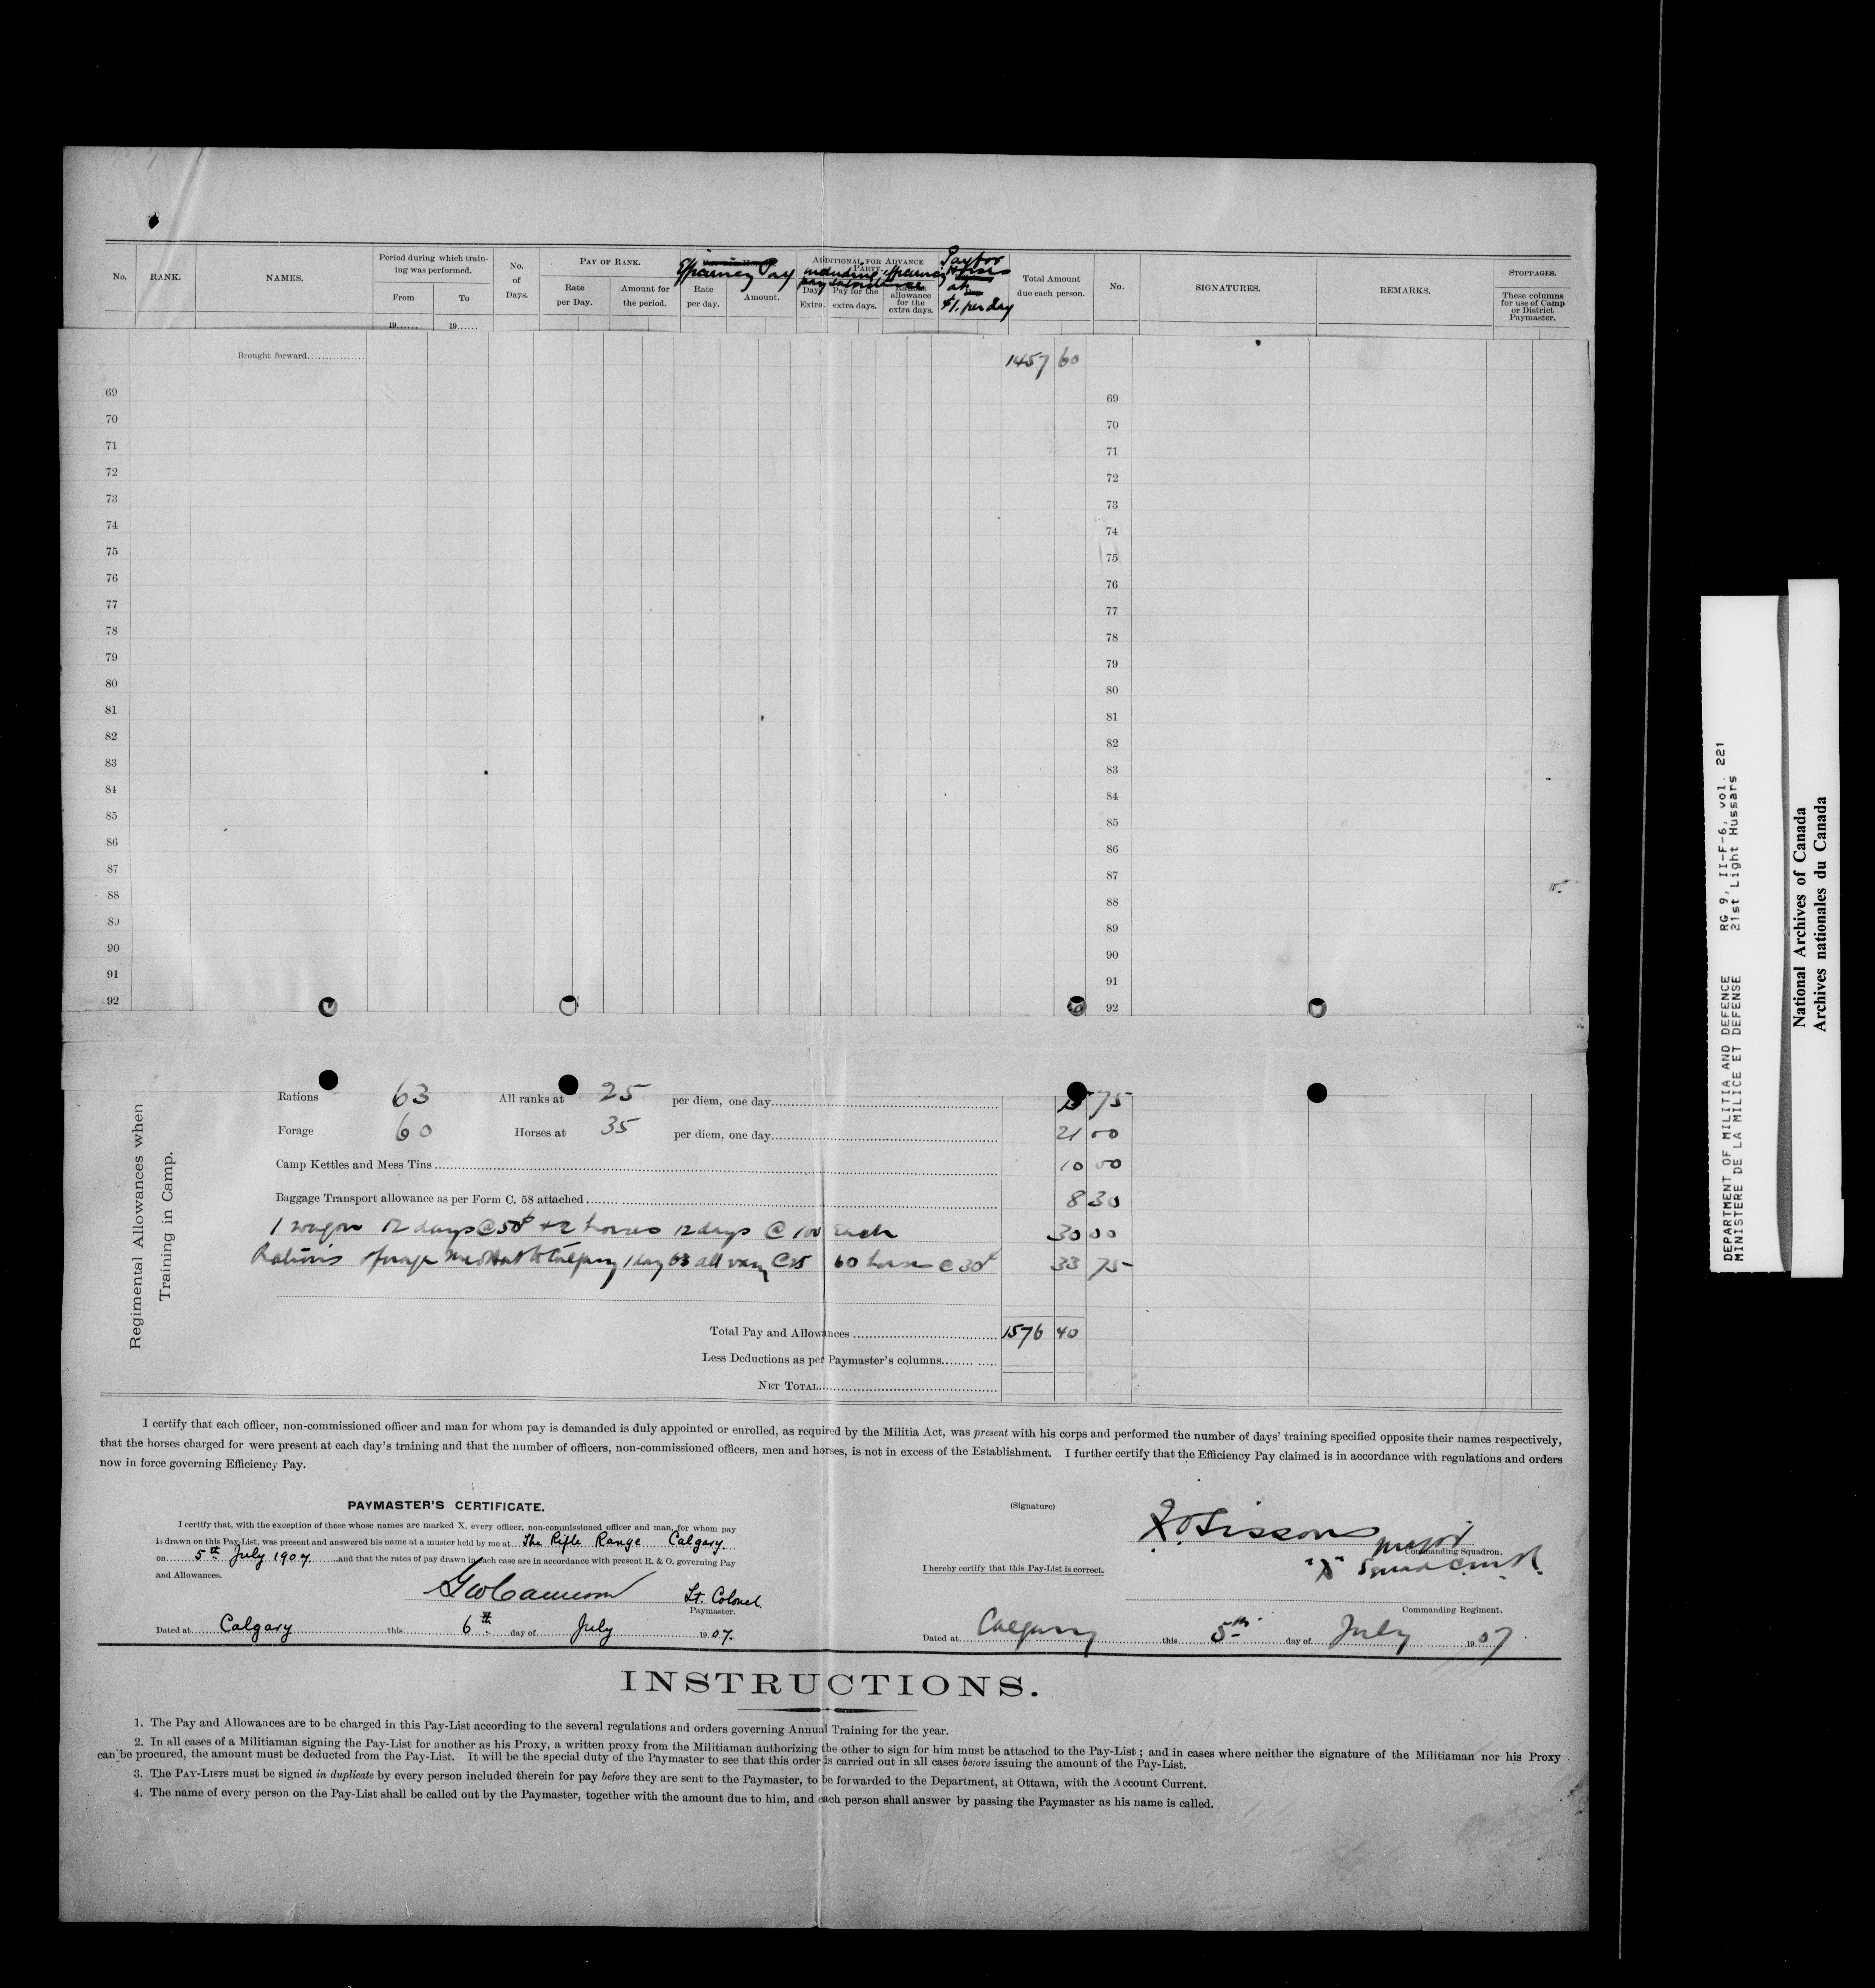 No. RANK. NAMES. Period during which train-ing was performed. From To No. of Days. PAY OF RANK. Rate per Day. Amount for the period. Efficiency Pay Rate per day. Amount. ADDITIONAL FOR ADVANCE PARTY. including efficiency pay subsistence Days Extra. Pay for the extra days. Rations allowance for the extra days. Pay for Horses at $1. per day Total Amount due each person. No. SIGNATURES. REMARKS. STOPPAGES. These columns for use of Camp or District Paymaster.
19...... 19......
Brought forward............... 1457 60
69 69
70 70
71 71
72 72
73 73
74 74
75 75
76 76
77 77
78 78
79 79
80 80
81 81
82 82
83 83
84 84
85 85
86 86
87 87
88 88
89 89
90 90
91 91
92 92
Regimental Allowances when Training in Camp.
Rations 63 All ranks at 25 per diem, one day 15 75
Forage 60 Horses at 35 per diem, one day 21 00
Camp Kettles and Mess Tins 10 00
Baggage Transport allowance as per Form C. 58 attached 8 30
1 wagon 12 days @ 50¢ + 2 horses 12 days @ 100 each 30 00
Rations forage Med Hat to Calgary 1 day 63 all @ 25 60 horses @ 30¢ 33 75
Total Pay and Allowances 1576 40
Less Deductions as per Paymaster's columns
NET TOTAL
I certify that each officer, non-commissioned officer and man for whom pay is demanded is duly appointed or enrolled, as required by the Militia Act, was present with his corps and performed the number of days' training specified opposite their names respectively,
that the horses charged for were present at each day's training and that the number of officers, non-commissioned officers, men and horses, is not in excess of the Establishment. I further certify that the Efficiency Pay claimed is in accordance with regulations and orders
now in force governing Efficiency Pay.
PAYMASTER'S CERTIFICATE.
I certify that, with the exception of those whose names are marked X, every officer, non-commissioned officer and man, for whom pay
is drawn on this Pay List, was present and answered his name at a muster held by me at The Rifle Range Calgary.
on 5th July 1907 and that the rates of pay drawn in each case are in accordance with present R. & O. governing Pay
and Allowances.
GW Cameron Lt. Colonel
Paymaster.
Dated at Calgary this 6th day of July 1907.
(Signature) Sissons Major
Commanding Squadron.
I hereby certify that this Pay-List is correct.
Commanding Regiment.
Dated at Calgary this 5th day of July 1907
INSTRUCTIONS.
1. The Pay and Allowances are to be charged in this Pay-List according to the several regulations and orders governing Annual Training for the year.
2. In all cases of a Militiaman signing the Pay-List for another as his Proxy, a written proxy from the Militiaman authorizing the other to sign for him must be attached to the Pay-List ; and in cases where neither the signature of the Militiaman nor his Proxy
can be procured, the amount must be deducted from the Pay-List. It will be the special duty of the Paymaster to see that this order is carried out in all cases before issuing the amount of the Pay-List.
3. The PAY-LISTS must be signed in duplicate by every person included therein for pay before they are sent to the Paymaster, to be forwarded to the Department, at Ottawa, with the Account Current.
4. The name of every person on the Pay-List shall be called out by the Paymaster, together with the amount due to him, and each person shall answer by passing the Paymaster as his name is called.
DEPARTMENT OF MILITIA AND DEFENCE RG 9, II-F-6, vol. 221
MINISTERE DE LA MILICE ET DEFENSE 21st Light Hussars
National Archives of Canada
Archives nationales du Canada